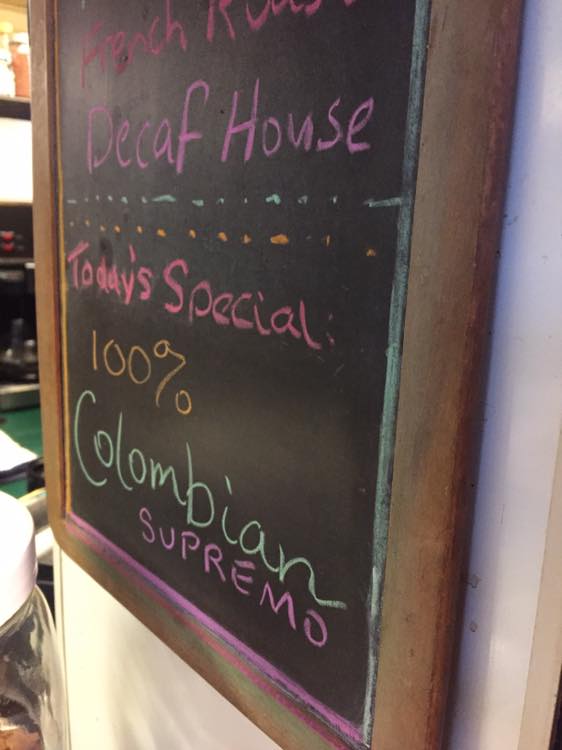 French Roast
Decaf House
Today's Special:
100%
Colombian
SUPREMO